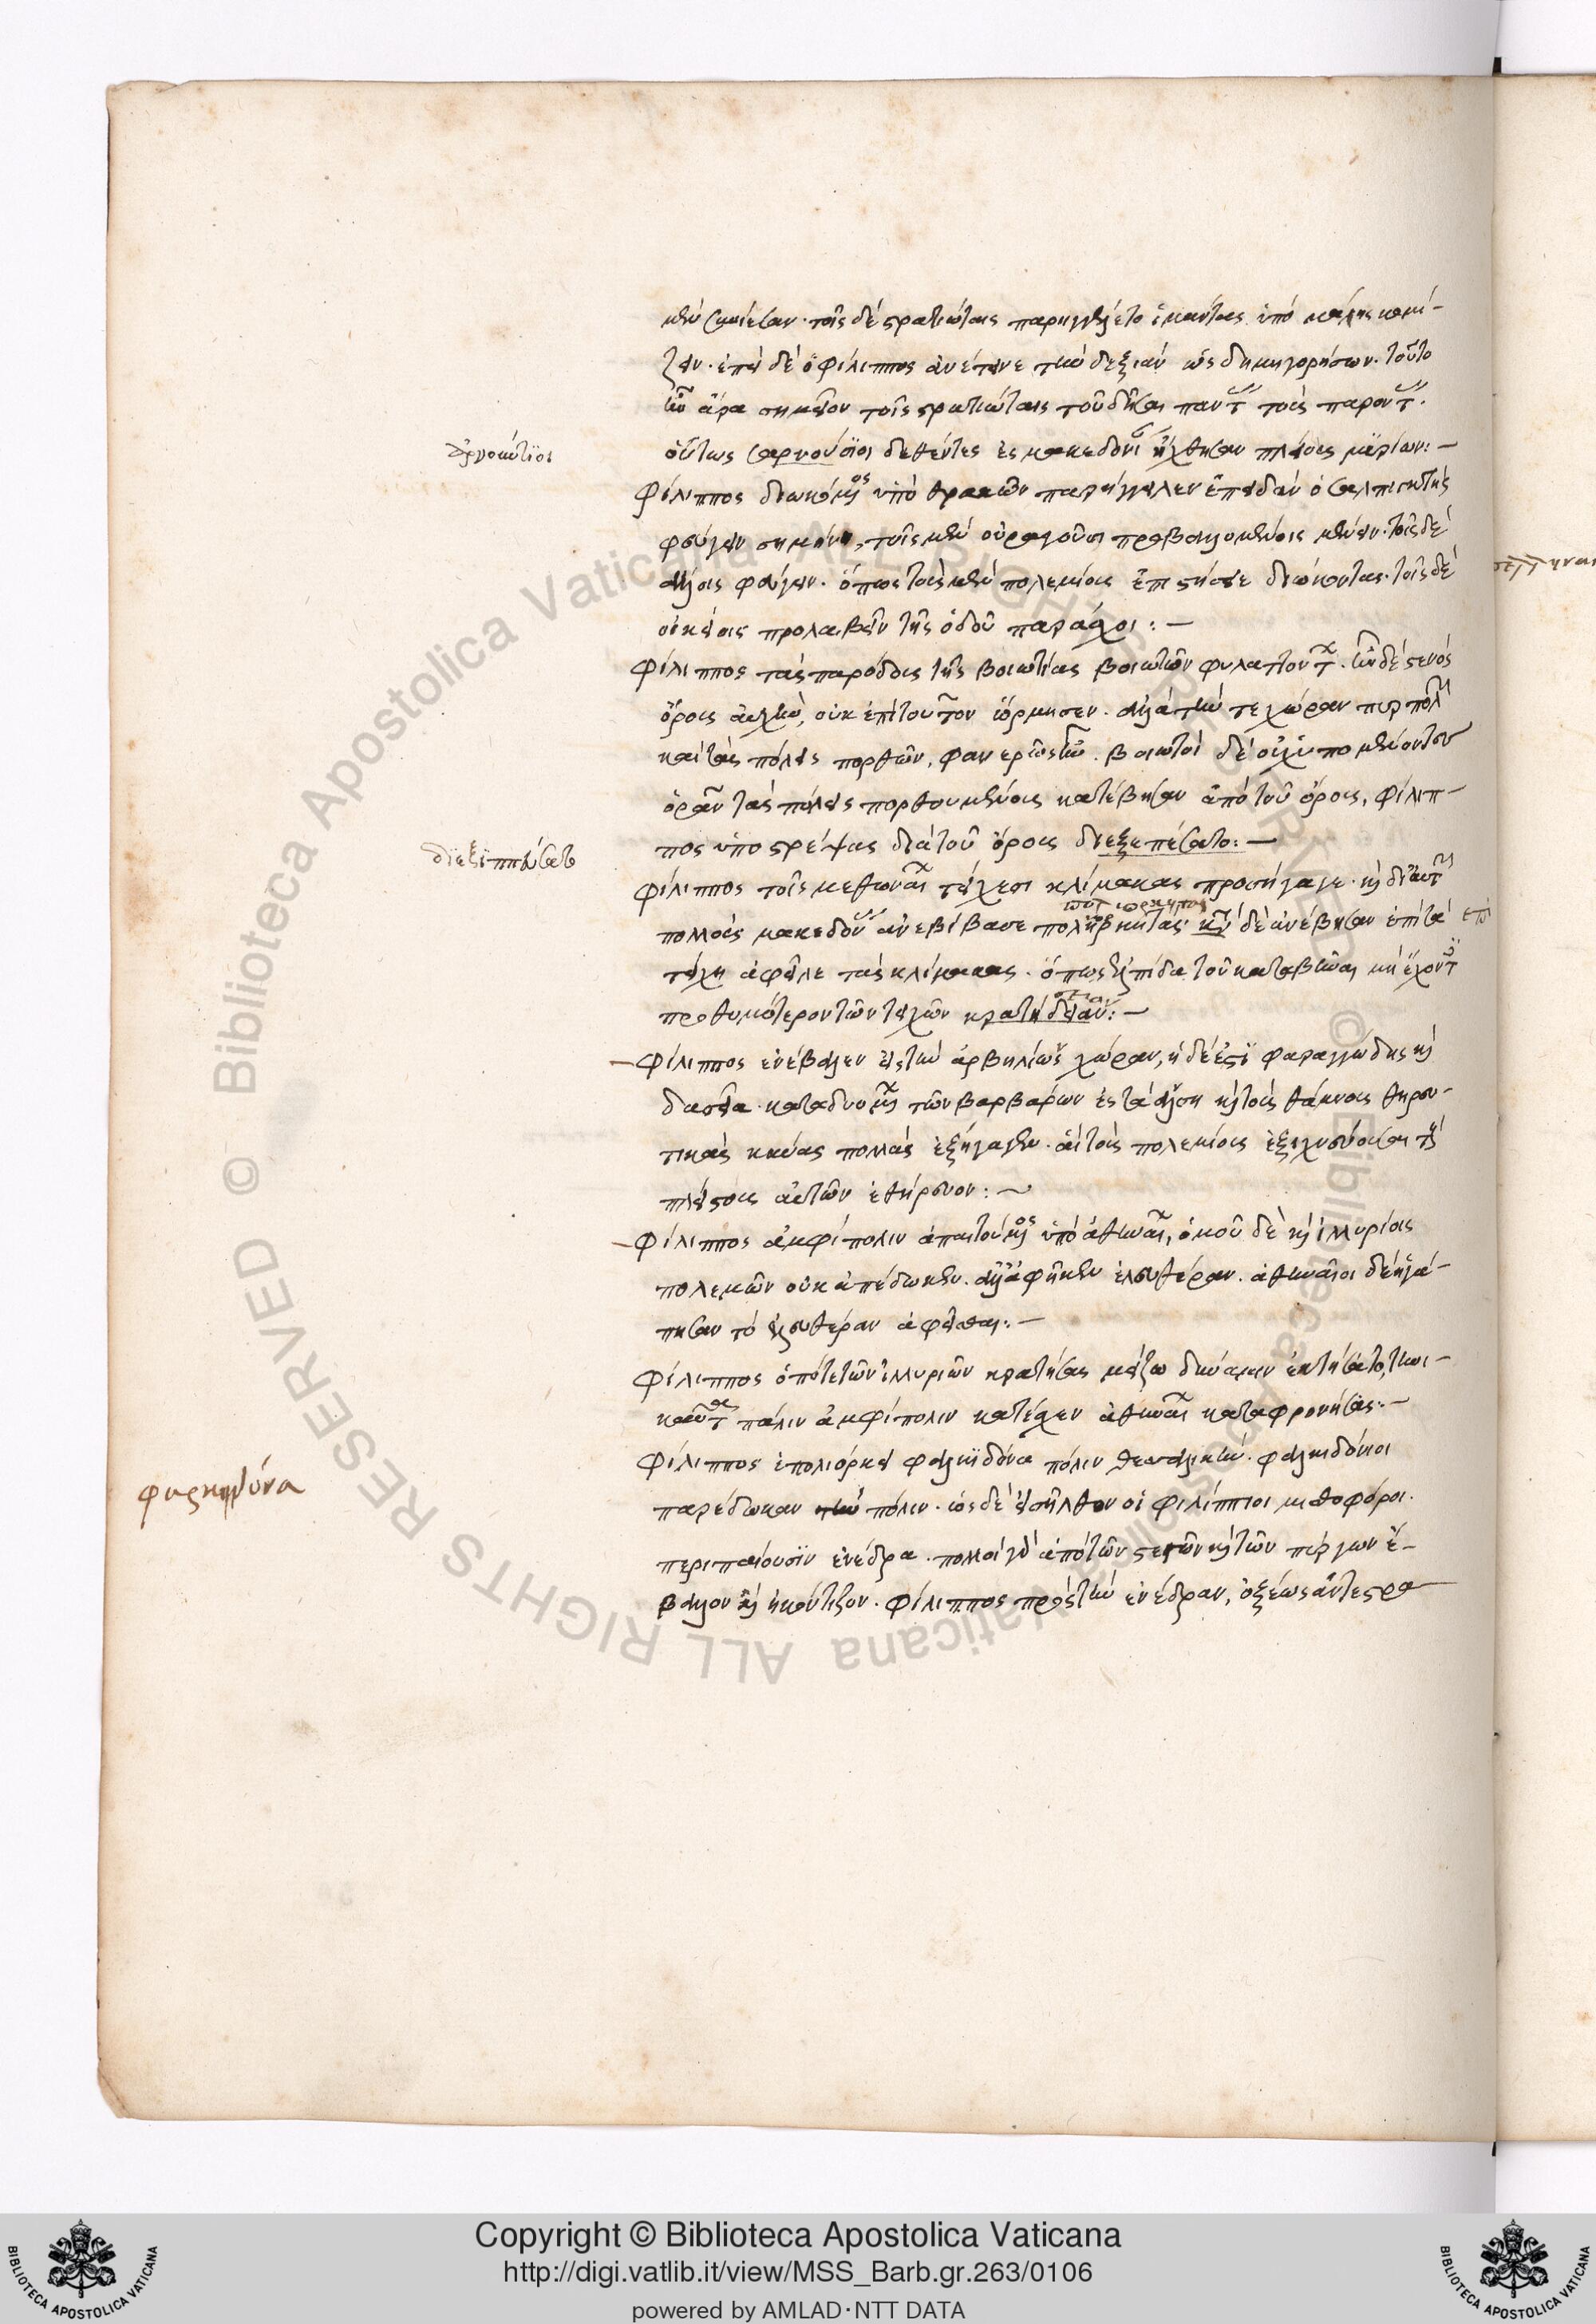 μὲν συνίεσαν· τοῖς δὲ στρατιώταις παρηγγέλετο ἱμάντας ὑπὸ μάλης κομί-
ζειν. ἐπεὶ δὲ ὁ φίλιππος ἀνέτεινε τὴν δεξιὰν ὡς δημηγορήσων. τοῦτο
ἦν ἄρα σημεῖον τοῖς στρατιώταις τοῦ δῆσαι πάντ τοὺς παρόντ.
οὕτως σαρνούσιοι δεθέντες ἐς μακεδονί ἤχθησαν πλείους μυρίων:—
Φίλιππος διωκόμος ὑπὸ θρακῶν παρήγγειλεν ἐπειδὰν ὁ σαλπιγκτὴς
φεύγειν σημήνη, τοῖς μὲν οὐραγοῦσι προβαλλομένοις μένειν. τοῖς δὲ
ἄλλοις φεύγειν. ὅπως τοὺς μὲν πολεμίους ἐπιστήσειε διώκοντας. τοῖς δὲ
οἰκείοις προλαβεῖν τῆς ὁδοῦ παράσχοι:—
Φίλιππος τὰς παρόδους τῆς βοιωτίας βοιωτῶν φυλαττόντ. ἦν δὲ στενὸς
ὄρους αὐχὴν, οὐκ ἐπὶ τοῦτον ὥρμησεν. ἀλλὰ τήν τε χώραν πυρπολ
καὶ τὰς πόλεις πορθῶν, φανερὸς ἦν. βοιωτοὶ δὲ οὐχ ὑπομένοντες
ὁρᾶν τὰς πόλεις πορθουμένας κατέβησαν ἀπὸ τοῦ ὄρους, φίλιπ-
πος ὑποστρέψας διὰ τοῦ ὄρους διεξεπέσατο:—
Φίλιππος τοῖς μεθωναί τείχεσι κλίμακας προσήγαγε. καὶ δι' αὐτ
πολλοὺς μακεδόν ἀνεβίβασε πολιορκητάς· δὲ ἀνέβησαν ἐπὶ τὰ
τείχη ἀφεῖλε τὰς κλίμακας. ὅπως ἐλπίδα τοῦ καταβῆναι μὴ ἔχοντ
προθυμότερον τῶν τειχῶν κρατήσειαν:—
Φίλιππος ἐνέβαλεν εἰς τὴν ἀρβηλίων χώραν, ἡ δέ ἐστι φαραγγώδης καὶ
δασεῖα. καταδυομ τῶν βαρβάρων ἐς τὰ ἄλση καὶ τοὺς θάμνους θηρευ-
τικὰς κύνας πολλὰς ἐξήγαγεν. αἳ τοὺς πολεμίους ἐξιχνεύουσαι τοὺς
πλείστους αὐτῶν ἐθήρευον:—
Φίλιππος ἀμφίπολιν ἀπαιτούμος ὑπὸ ἀθηναί, ὁμοῦ δὲ καὶ ἰλλυρίοις
πολεμῶν οὐκ ἀπέδωκεν. ἀλλ' ἀφῆκεν ἐλευθέραν. ἀθηναῖοι δὲ ἠγά-
πησαν τὸ ἐλευθέραν ἀφεῖσθαι:—
Φίλιππος ὁπότε τῶν ἰλλυριῶν κρατήσας μείζω δύναμιν ἐκτήσατο, τηνι-
καῦτ πάλιν ἀμφίπολιν κατέσχεν ἀθηναί καταφρονήσας:—
Φίλιππος ἐπολιόρκει φαλκιδόνα πόλιν θεσσαλικήν. φαλκιδόνιοι
παρέδωκαν τὴν πόλιν. ὡς δὲ εἰσῆλθον οἱ φιλίππιοι μισθοφόροι.
περιπαίουσιν ἐνέδρα. πολλοὶ γὰρ ἀπὸ τῶν στεγῶν καὶ τῶν πύργων ἔ-
βαλλον καὶ ἠκόντιζον. φίλιππος πρὸς τὴν ἐνέδραν, ὀξέως ἀντεστρα
διεξιππάσατο
Copyright © Biblioteca Apostolica Vaticana
http://digi.vatlib.it/view/MSS_Barb.gr.263/0106
powered by AMLAD·NTT DATA
BIBLIOTECA APOSTOLICA VATICANA
BIBLIOTECA APOSTOLICA VATICANA
© Biblioteca Apostolica Vaticana ALL RIGHTS RESERVED
© Biblioteca Apostolica Vaticana ALL RIGHTS RESERVED